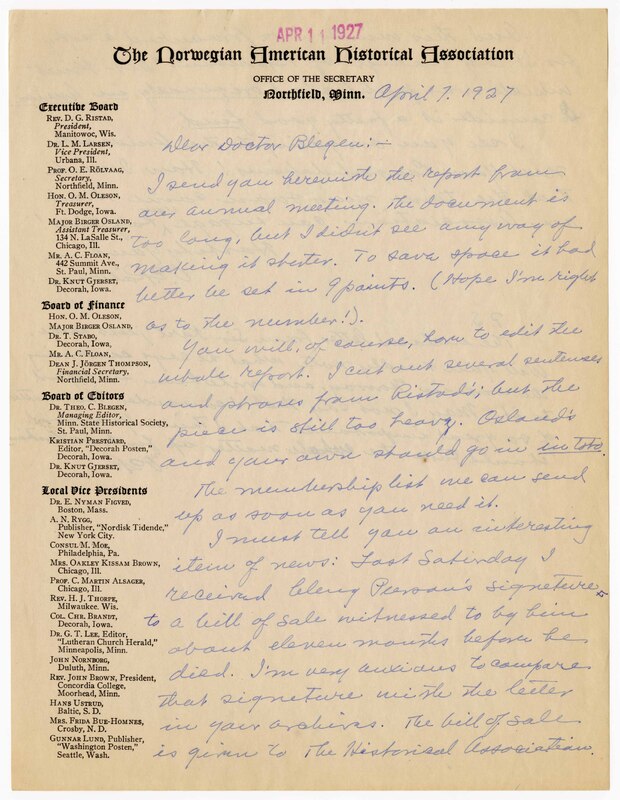 APR 11 1927
The Norwegian American Historical Association
OFFICE OF THE SECRETARY
Northfield, Minn. April 7. 1927
Executive Board
REV. D. G. RISTAD,
President,
Manitowoc, Wis.
DR. L. M. LARSEN,
Vice President,
Urbana, Ill.
PROF. O. E. RÖLVAAG,
Secretary,
Northfield, Minn.
HON. O. M. OLESON,
Treasurer,
Ft. Dodge, Iowa.
MAJOR BIRGER OSLAND,
Assistant Treasurer,
134 N. LaSalle St.,
Chicago, Ill.
MR. A. C. FLOAN,
442 Summit Ave.,
St. Paul, Minn.
DR. KNUT GJERSET,
Decorah, Iowa.
Board of Finance
HON. O. M. OLESON,
MAJOR BIRGER OSLAND,
DR. T. STABO,
Decorah, Iowa.
MR. A. C. FLOAN,
DEAN J. JÖRGEN THOMPSON,
Financial Secretary,
Northfield, Minn.
Board of Editors
DR. THEO. C. BLEGEN,
Managing Editor,
Minn. State Historical Society,
St. Paul, Minn.
KRISTIAN PRESTGARD,
Editor, "Decorah Posten,"
Decorah, Iowa.
DR. KNUT GJERSET,
Decorah, Iowa.
Local Vice Presidents
DR. E. NYMAN FIGVED,
Boston, Mass.
A. N. RYGG,
Publisher, "Nordisk Tidende,"
New York City.
CONSUL M. MOE,
Philadelphia, Pa.
MRS. OAKLEY KISSAM BROWN,
Chicago, Ill.
PROF. C. MARTIN ALSAGER,
Chicago, Ill.
REV. H. J. THORPE,
Milwaukee. Wis.
COL. CHR. BRANDT,
Decorah, Iowa.
DR. G. T. LEE, Editor,
"Lutheran Church Herald,"
Minneapolis, Minn.
JOHN NORNBORG,
Duluth, Minn.
REV. JOHN BROWN, President,
Concordia College,
Moorhead, Minn.
HANS USTRUD,
Baltic, S. D.
MRS. FRIDA BUE-HOMNES,
Crosby, N. D.
GUNNAR LUND, Publisher,
"Washington Posten,"
Seattle, Wash.
Dear Doctor Blegen:—
I send you herewith the report from
our annual meeting. The document is
too long, but I didn't see any way of
making it shorter. To save space it had
better be set in 9 points. (Hope I'm right
as to the number!).
You will, of course, have to edit the
whole report. I cut out several sentences
and phrases from Ristad's; but the
piece is still too heavy. Osland's
and your own should go in in toto.
The membership list we can send
up as soon as you need it.
I must tell you an interesting
item of news: Last Saturday I
received Cleng Peerson's signature
to a bill of sale witnessed to by him
about eleven months before he
died. I'm very anxious to compare
that signature with the letter
in your archives. The bill of sale
is given to The Historical Association.